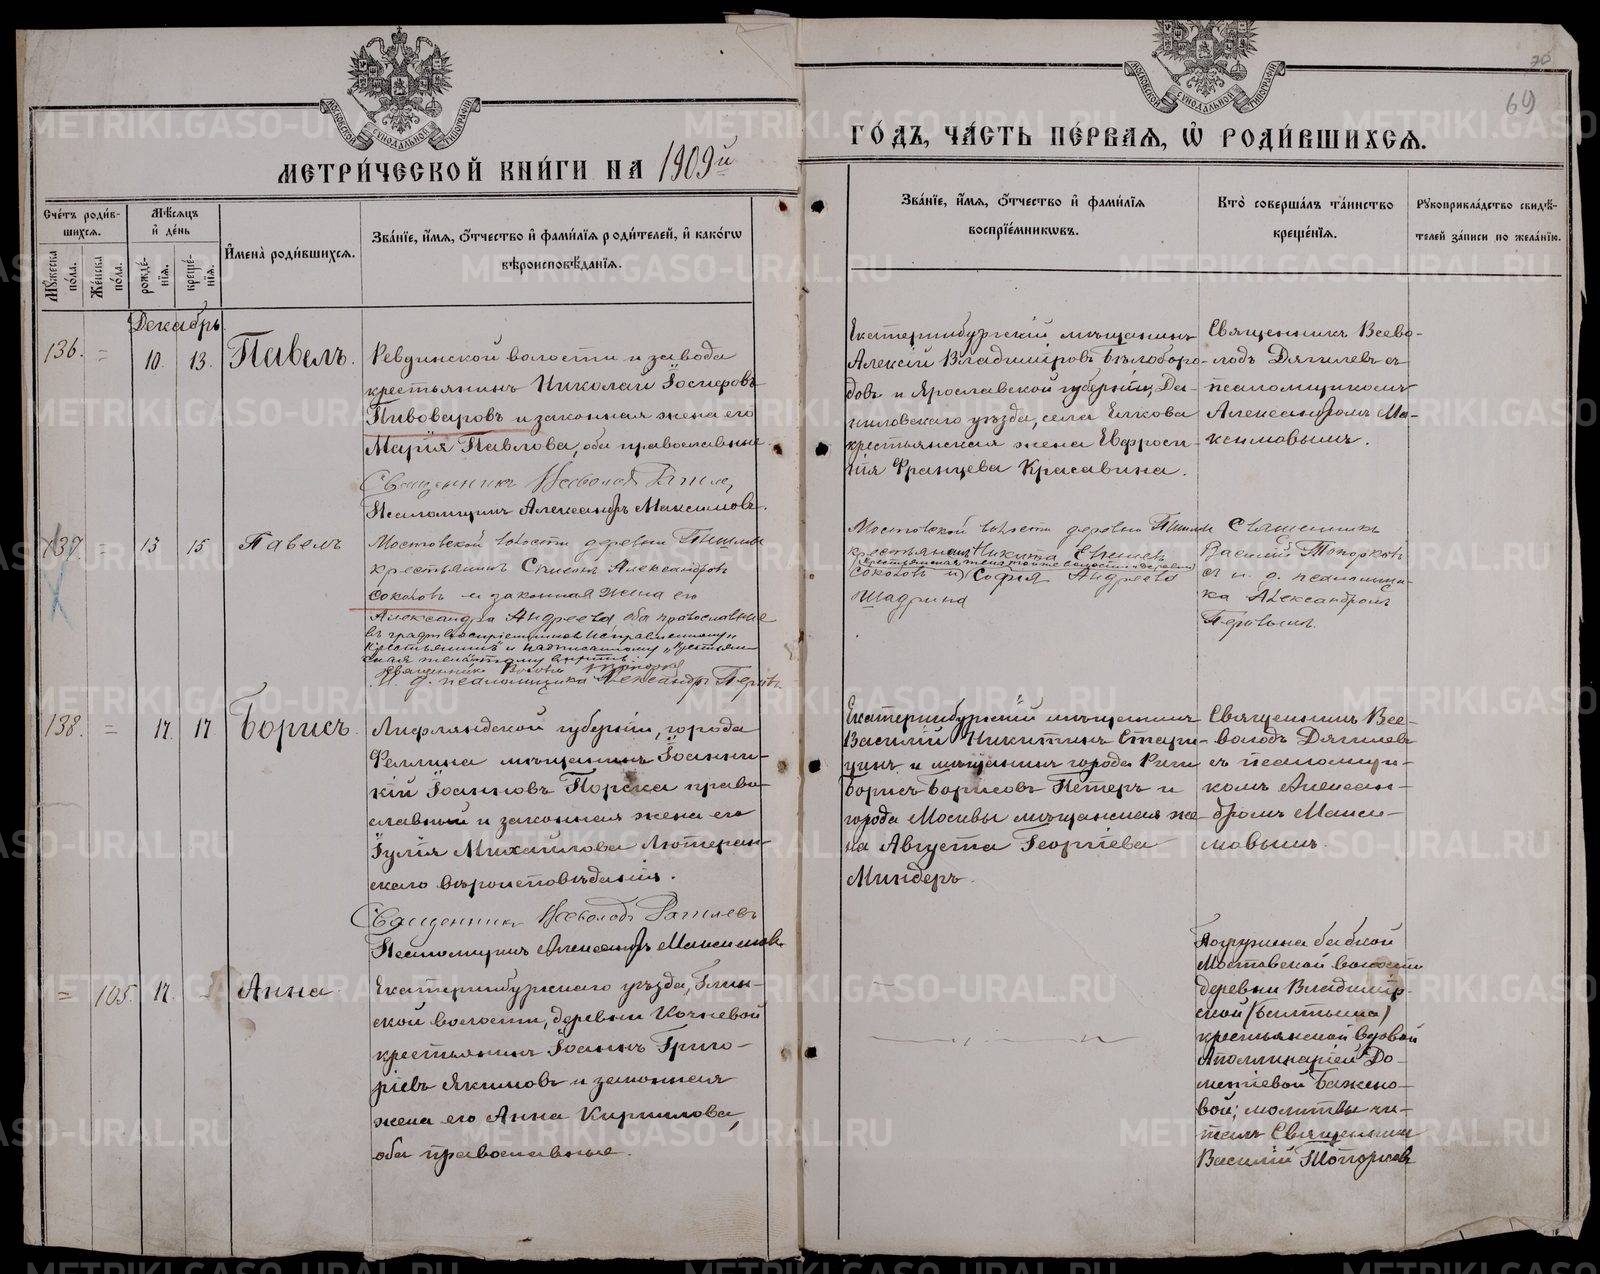 МЕТРИ́ЧЕСКОЙ КНИ́ГИ НА 1909й
ГО́ДЪ, ЧА́СТЬ ПЕ́РВАЯ, Ѡ РОДИ́ВШИХСЯ.
69
70
МОСКОВСКОЙ СУНОДАЛЬНОЙ ТИПОГРАФІИ
МОСКОВСКОЙ СУНОДАЛЬНОЙ ТИПОГРАФІИ
Сче́тъ роди́в-
шихся.
Му́жеска по́ла.
Же́нска по́ла.
Мѣ́сяцъ
и҆ де́нь
рожде́-
нїя.
креще́-
нїя.
И҆мена̀ роди́вшихся.
Зва́нїе, и҆́мя, ѻ҆́тчество и҆ фами́лїя роди́телей, и҆ како́гѡ
вѣроисповѣ́данїя.
Зва́нїе, и҆́мя, ѻ҆́тчество и҆ фами́лїя
воспрїе́мниковъ.
Кто̀ соверша́лъ та́инство
креще́нїя.
Рꙋкоприкла́дство свидѣ́-
телей за́писи по жела́нїю.
Декабрь
136. = 10. 13. Павелъ.
Ревдинской волости и завода
крестьянинъ Николай Іосифовъ
Пивоваровъ и законная жена его
Марія Павлова, оба православные
Священникъ Всеволодъ
Псаломщикъ Александръ Максимовъ.
Екатеринбургскій мѣщанинъ
Алексѣй Владиміровъ Бѣлоборо-
довъ и Ярославской губерніи, Да-
ниловскаго уѣзда, села
крестьянская жена Евфроси-
нія Францева Красавина.
Священникъ Всево-
лодъ Дягилевъ съ
псаломщикомъ
Александромъ Ма-
ксимовымъ.
137. = 13 15 Павелъ
Мостовской волости деревни
крестьянинъ Александровъ
Соколовъ и законная жена его
Александра Андреева, оба православные
въ графѣ воспріемниковъ исправленному
"крестьянинъ" и надписанному "крестьян-
ская жена" вѣрить.
Священникъ
И. д. псаломщика Александръ Перовъ
Мостовской волости деревни
крестьянинъ Никита
крестьянская жена той же волости и деревни
Соколовъ и София Андреева
Шадрина
Священникъ
Василій Топорковъ
съ и. д. псаломщи-
ка Александромъ
Перовымъ.
138. = 17. 17 Борисъ.
Лифляндской губерніи, города
Феллина мѣщанинъ Іоанни-
кій Іоанновъ Порска право-
славный и законная жена его
Іулія Михайлова Лютеран-
скаго вѣроисповѣданія.
Священникъ Всеволодъ Дягилевъ
Псаломщикъ Александръ Максимовъ.
Екатеринбургскій мѣщанинъ
Василій Никитинъ Стари-
цинъ и мѣщанинъ города Риги
Борисъ Борисовъ Петеръ и
города Москвы мѣщанская же-
на Августа Георгіева
Миндеръ.
Священникъ Все-
володъ Дягилевъ
съ псаломщи-
комъ Алексан-
дромъ Макси-
мовымъ.
= 105. 17. - Анна.
Екатеринбургскаго уѣзда, Глин-
ской волости, деревни Кочневой
крестьянинъ Іоаннъ Григо-
ріевъ Якимовъ и законная
жена его Анна Кириллова,
оба православные.
Погружена бабкой
Мостовской волости
деревни Владимір-
ской (Балтыма)
крестьянской вдовой
Аполлинаріей До-
метіевой Бажено-
вой; молитвы чи-
талъ Священникъ
Василій Топорковъ
METRIKI.GASO-URAL.RU